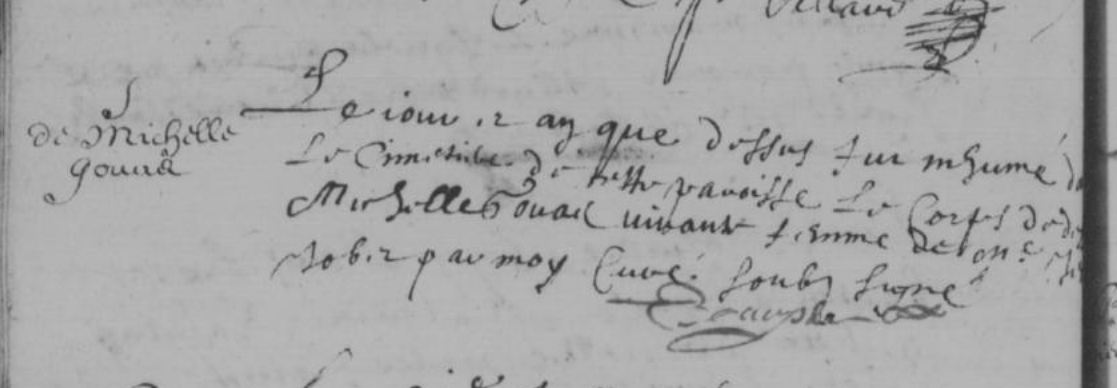 Villaud
S
de Michelle
Gouurā
Le iour et an que dessus fut inhumé d
Le Cimetiere de cette paroisse Le Corps de de
Michelle vivante femme de
par moy Curé soubs signé